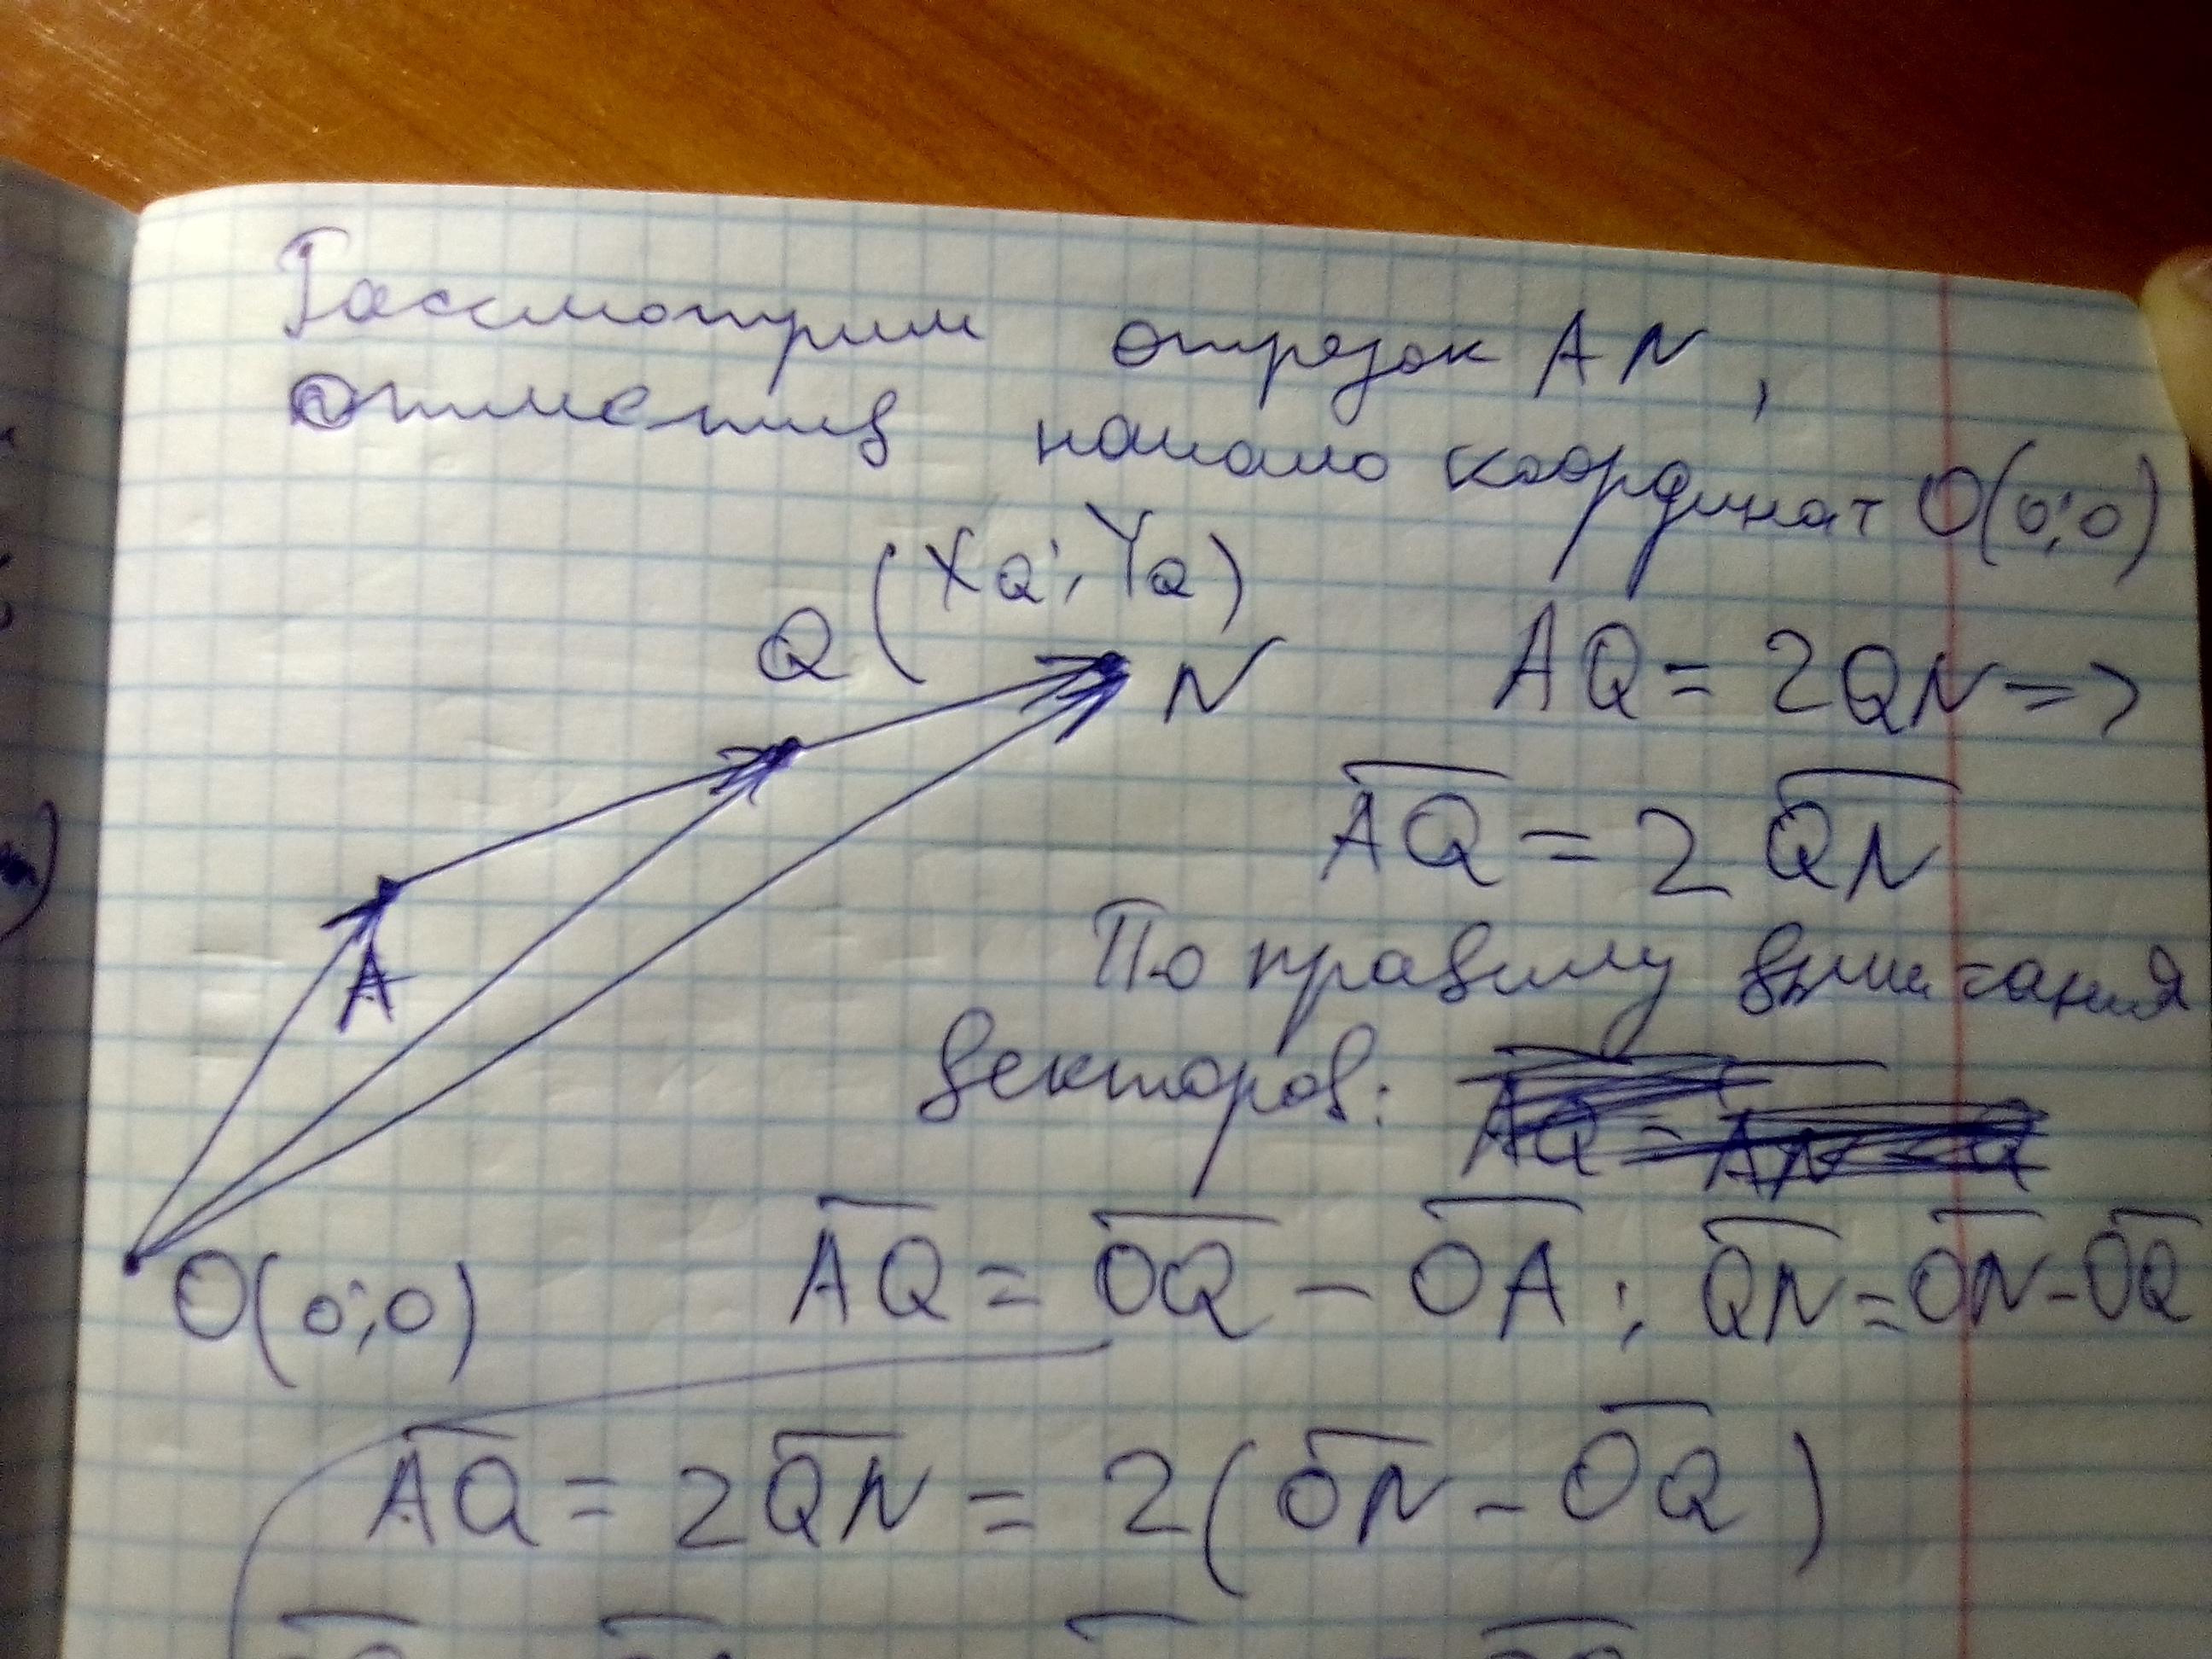 Рассмотрим отрезок AN,
отметив начало координат O(0;0)
Q (XQ; YQ)
N
AQ = 2QN =>
AQ = 2 QN
A
По правилу вычитания
векторов:
O(0;0)
AQ = OQ - OA ; QN = ON - OQ
AQ = 2QN = 2(ON - OQ)